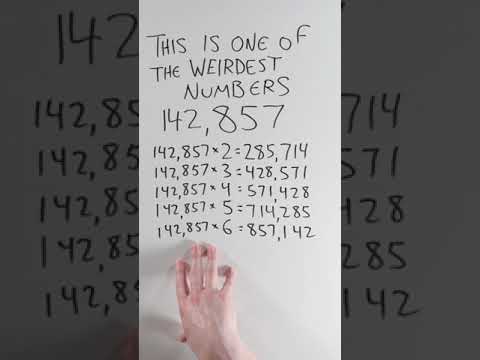 THIS IS ONE OF
THE WEIRDEST
NUMBERS
142,857
142,857 × 2 = 285,714
142,857 × 3 = 428,571
142,857 × 4 = 571,428
142,857 × 5 = 714,285
142,857 × 6 = 857,142